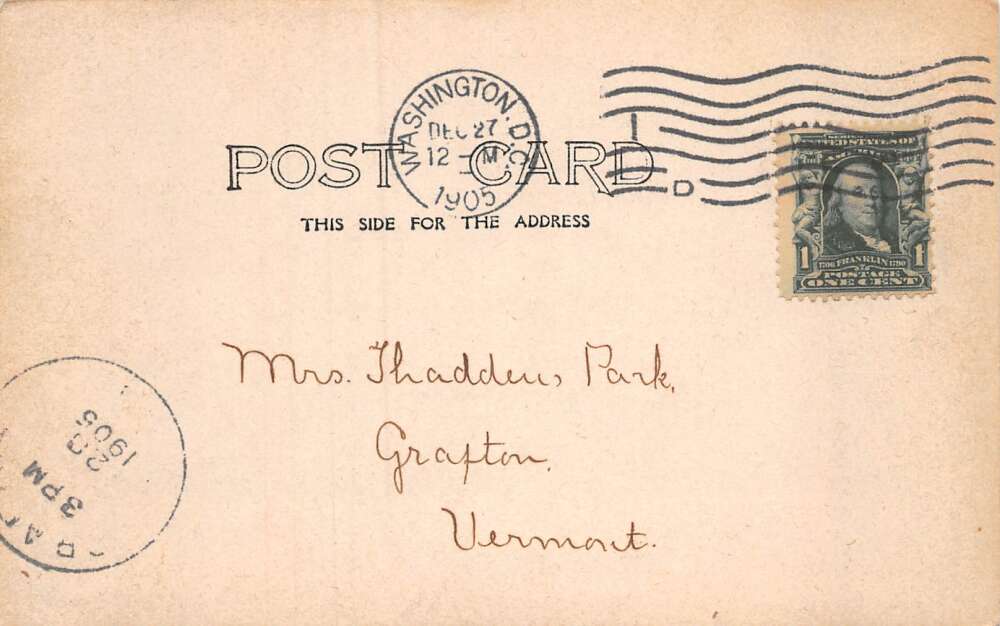 WASHINGTON. D.C.
DEC 27
12 M
1905
I
D
POST CARD
THIS SIDE FOR THE ADDRESS
UNITED STATES OF
AMERICA
1 1
1706 FRANKLIN 1790
POSTAGE
ONE CENT
Mrs. Thaddeus Park,
Grafton,
Vermont.
3 PM
1905